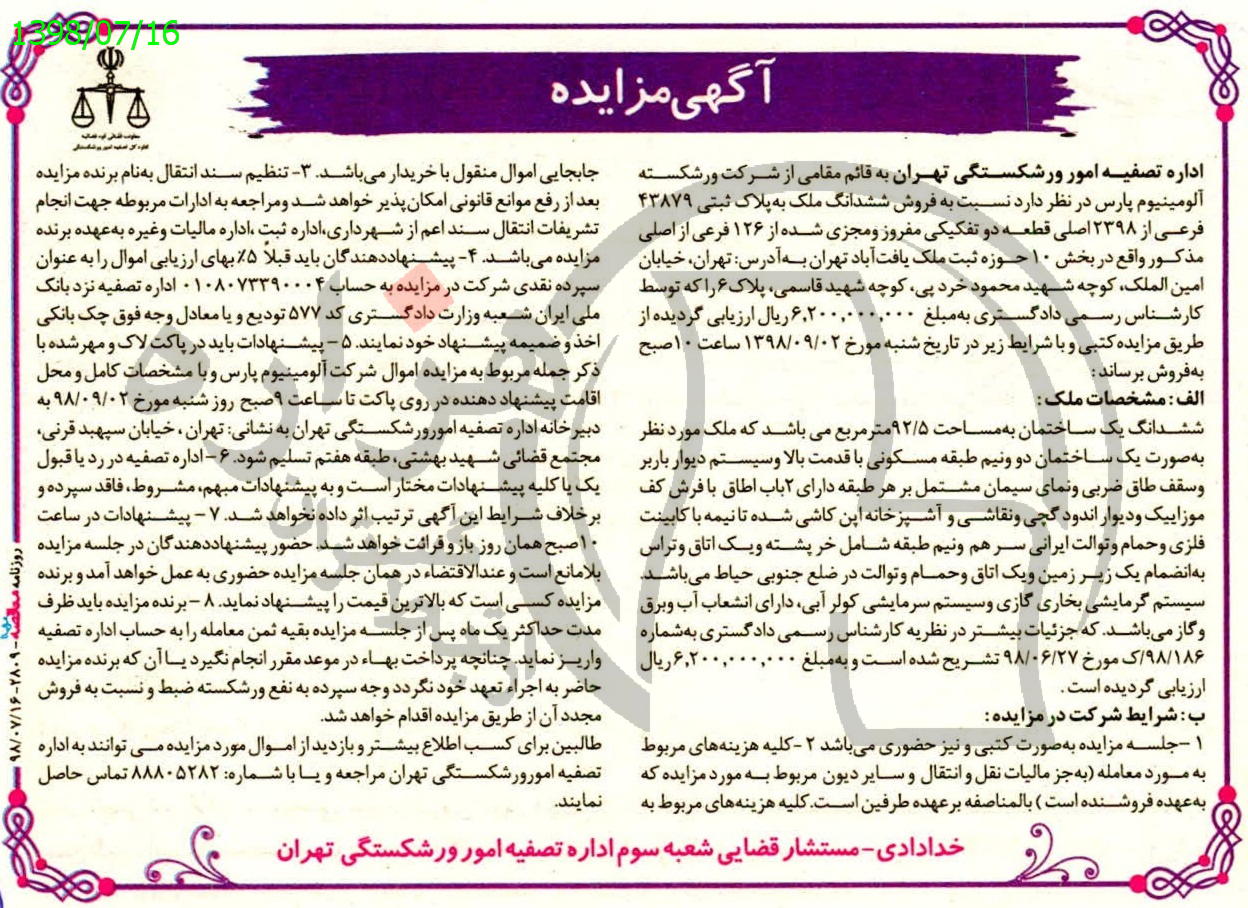 1398/07/16
معاونت قضائی قوه قضائیه
اداره کل تصفیه امور ورشکستگی
آگهی مزایده
اداره تصفیـه امور ورشکسـتگی تهـران به قائم مقامی از شـرکت ورشکسـته
آلومینیوم پارس در نظر دارد نسـبت به فروش ششدانگ ملک به‌پلاک ثبتی ۴۳۸۷۹
فرعـی از ۲۳۹۸ اصلی قطعـه دو تفکیکی مفروز ومجزی شـده از ۱۲۶ فرعی از اصلی
مذکـور واقع در بخش ۱۰ حـوزه ثبت ملک یافت‌آباد تهران بـه‌آدرس: تهران، خیابان
امین الملک، کوچه شـهید محمود خرد پی، کوچه شهید قاسمی، پلاک ۶ را که توسط
کارشـناس رسـمی دادگسـتری به‌مبلغ ۶,۲۰۰,۰۰۰,۰۰۰ ریال ارزیابی گردیده از
طریق مزایده کتبی و با شرایط زیر در تاریخ شنبه مورخ ۱۳۹۸/۰۹/۰۲ ساعت ۱۰صبح
به‌فروش برساند:
الف: مشخصات ملک:
ششـدانگ یک سـاختمان به‌مسـاحت ۹۲/۵مترمربع می باشد که ملک مورد نظر
به‌صورت یک سـاختمان دو ونیم طبقه مسـکونی با قدمت بالا وسیسـتم دیوار باربر
وسقف طاق ضربی ونمای سیمان مشـتمل بر هر طبقه دارای ۲باب اطاق با فرش کف
موزاییک ودیوار اندود گچی ونقاشـی و آشـپزخانه اپن کاشی شـده تا نیمه با کابینت
فلزی وحمام وتوالت ایرانی سـر هم ونیم طبقه شـامل خر پشـته ویـک اتاق وتراس
به‌انضمام یک زیـر زمین ویک اتاق وحمـام وتوالت در ضلع جنوبی حیاط می‌باشـد.
سیستم گرمایشی بخاری گازی وسیستم سرمایشی کولر آبی، دارای انشعاب آب وبرق
وگاز می‌باشـد. که جزئیات بیشـتر در نظریه کارشناس رسـمی دادگستری به‌شماره
۹۸/۱۸۶/ک مورخ ۹۸/۰۶/۲۷ تشـریح شده اسـت و به‌مبلغ ۶,۲۰۰,۰۰۰,۰۰۰ ریال
ارزیابی گردیده است .
ب: شرایط شرکت در مزایده:
۱ –جلسـه مزایده به‌صورت کتبـی و نیز حضوری می‌باشد ۲ -کلیه هزینه‌های مربوط
به مـورد معامله (به‌جز مالیات نقل و انتقال و سـایر دیون مربوط بـه مورد مزایده که
به‌عهده فروشـنده است) بالمناصفه برعهده طرفین اسـت.کلیه هزینه‌های مربوط به
جابجایی اموال منقول با خریدار می‌باشـد. ۳- تنظیم سـند انتقال به‌نام برنده مزایده
بعد از رفع موانع قانونی امکان‌پذیر خواهد شـد ومراجعه به ادارات مربوطه جهت انجام
تشریفات انتقال سـند اعم از شـهرداری،اداره ثبت ،اداره مالیات وغیره به‌عهده برنده
مزایده می‌باشـد. ۴- پیشـنهاددهندگان باید قبلاً ۵٪ بهای ارزیابی اموال را به عنوان
سپرده نقدی شرکت در مزایده به حساب ۰۱۰۸۰۷۳۳۹۰۰۰۴ اداره تصفیه نزد بانک
ملی ایران شـعبه وزارت دادگسـتری کد ۵۷۷ تودیع و یا معادل وجه فوق چک بانکی
اخذ و ضمیمه پیشـنهاد خود نمایند. ۵ – پیشـنهادات باید در پاکت لاک و مهر شده با
ذکر جمله مربوط به مزایده اموال شرکت آلومینیوم پارس و با مشخصات کامل و محل
اقامت پیشنهاد دهنده در روی پاکت تا سـاعت ۹صبح روز شنبه مورخ ۹۸/۰۹/۰۲ به
دبیرخانه اداره تصفیه امورورشکسـتگی تهران به نشانی: تهران ، خیابان سپهبد قرنی،
مجتمع قضائی شـهید بهشتی، طبقه هفتم تسلیم شود. ۶ –اداره تصفیه در رد یا قبول
یک یا کلیه پیشـنهادات مختار اسـت و به پیشنهادات مبهم، مشـروط، فاقد سپرده و
برخلاف شـرایط این آگهی ترتیب اثر داده نخواهد شـد. ۷ – پیشـنهادات در ساعت
۱۰صبح همان روز باز و قرائت خواهد شـد. حضور پیشنهاددهندگان در جلسه مزایده
بلامانع است و عندالاقتضاء در همان جلسه مزایده حضوری به عمل خواهد آمد و برنده
مزایده کسـی است که بالاترین قیمت را پیشـنهاد نماید. ۸ –برنده مزایده باید ظرف
مدت حداکثر یک ماه پس از جلسـه مزایده بقیه ثمن معامله را به حساب اداره تصفیه
واریـز نماید. چنانچه پرداخت بهـاء در موعد مقرر انجام نگیرد یـا آن که برنده مزایده
حاضر به اجراء تعهد خود نگردد وجه سپرده به نفع ورشکسته ضبط و نسبت به فروش
مجدد آن از طریق مزایده اقدام خواهد شد.
طالبین برای کسـب اطلاع بیشـتر و بازدید از امـوال مورد مزایده مـی توانند به اداره
تصفیه امورورشکسـتگی تهران مراجعه و یـا با شـماره: ۸۸۸۰۵۲۸۲ تماس حاصل
نمایند.
خدادادی-مستشار قضایی شعبه سوم اداره تصفیه امور ورشکستگی تهران
روزنامه مناقصه مزایده - ۲۸۰۹-۹۸/۰۷/۱۶